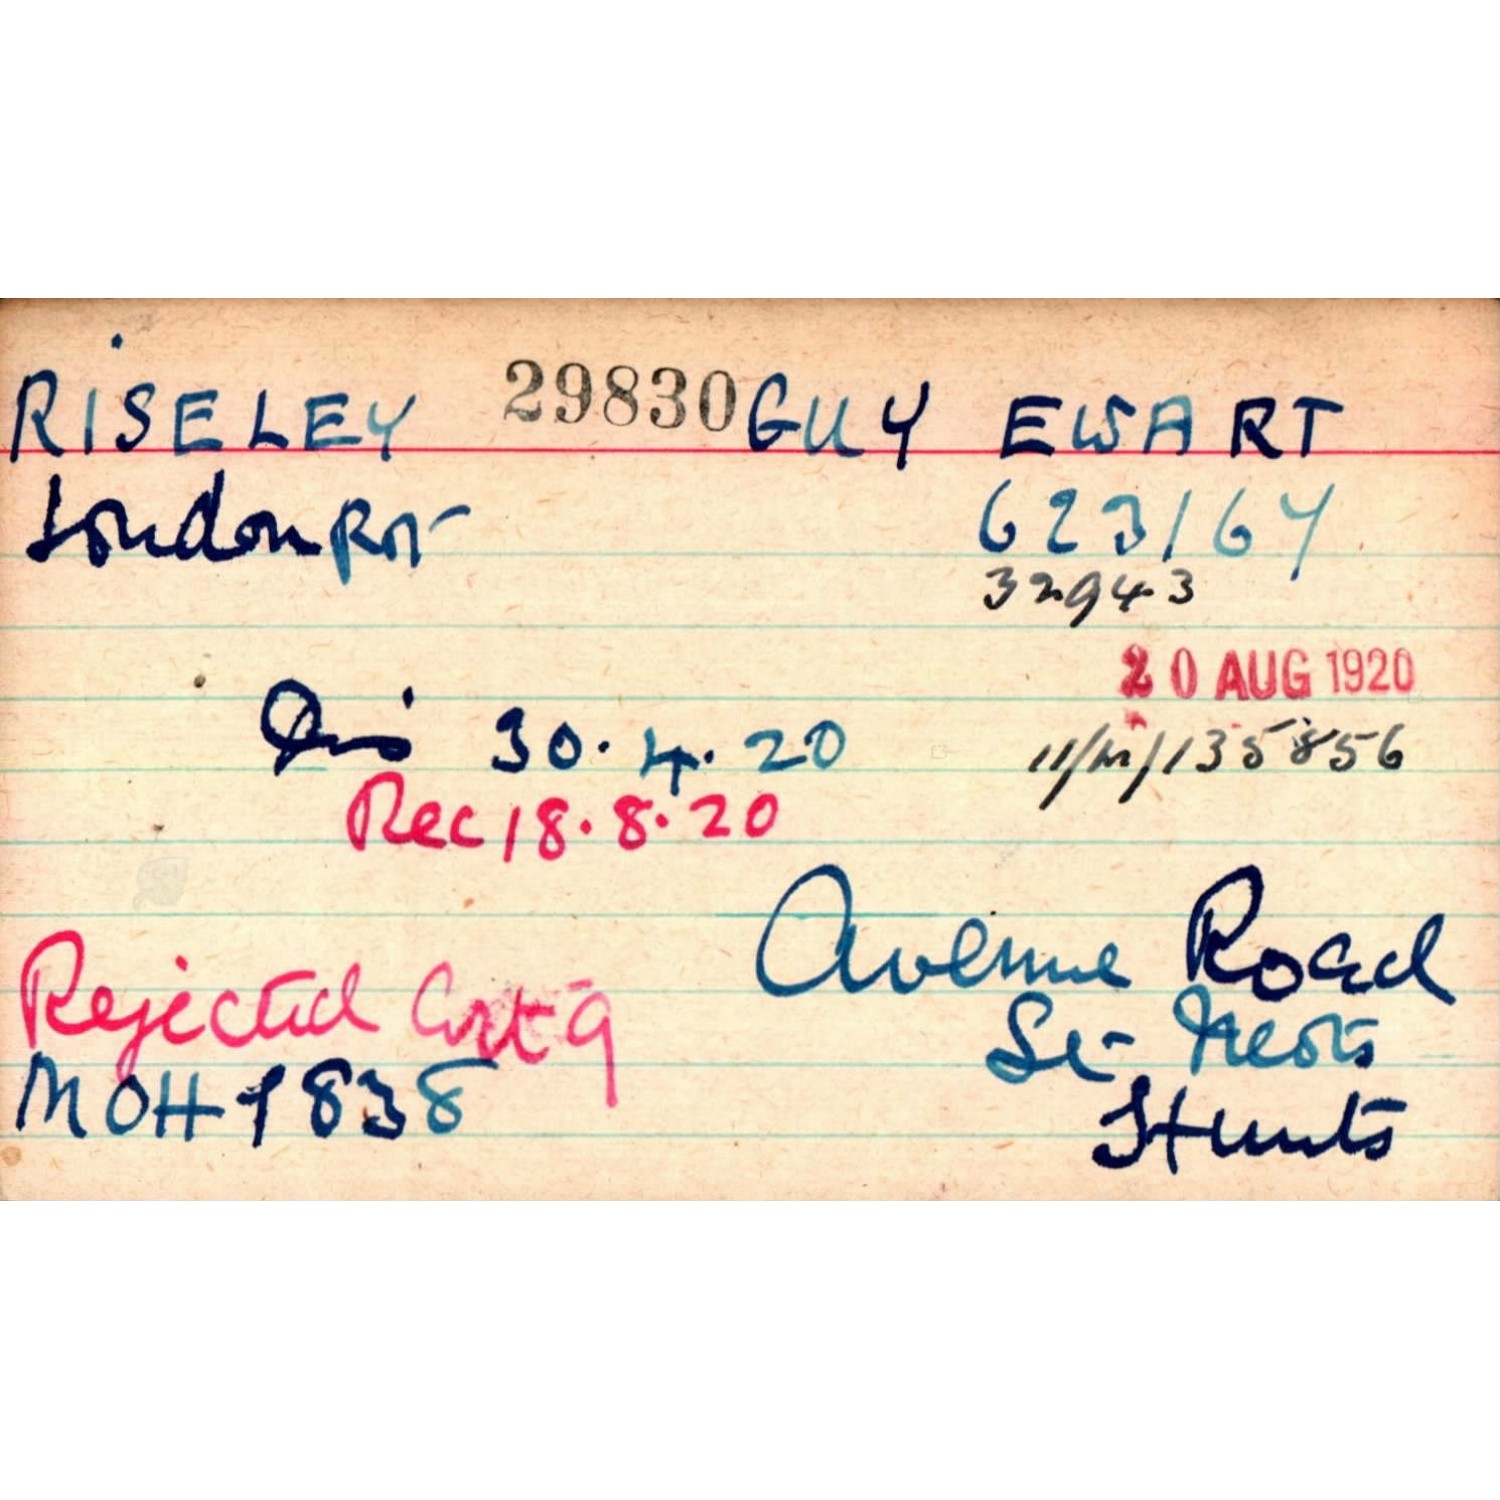 RISELEY 29830 GUY EWART
London Rgt 623164
32943
20 AUG 1920
Dis 30.4.20 11/M/135856
Rec 18.8.20
Avenue Road
Rejected Cert 9 St Neots
MOH 1838 Hunts